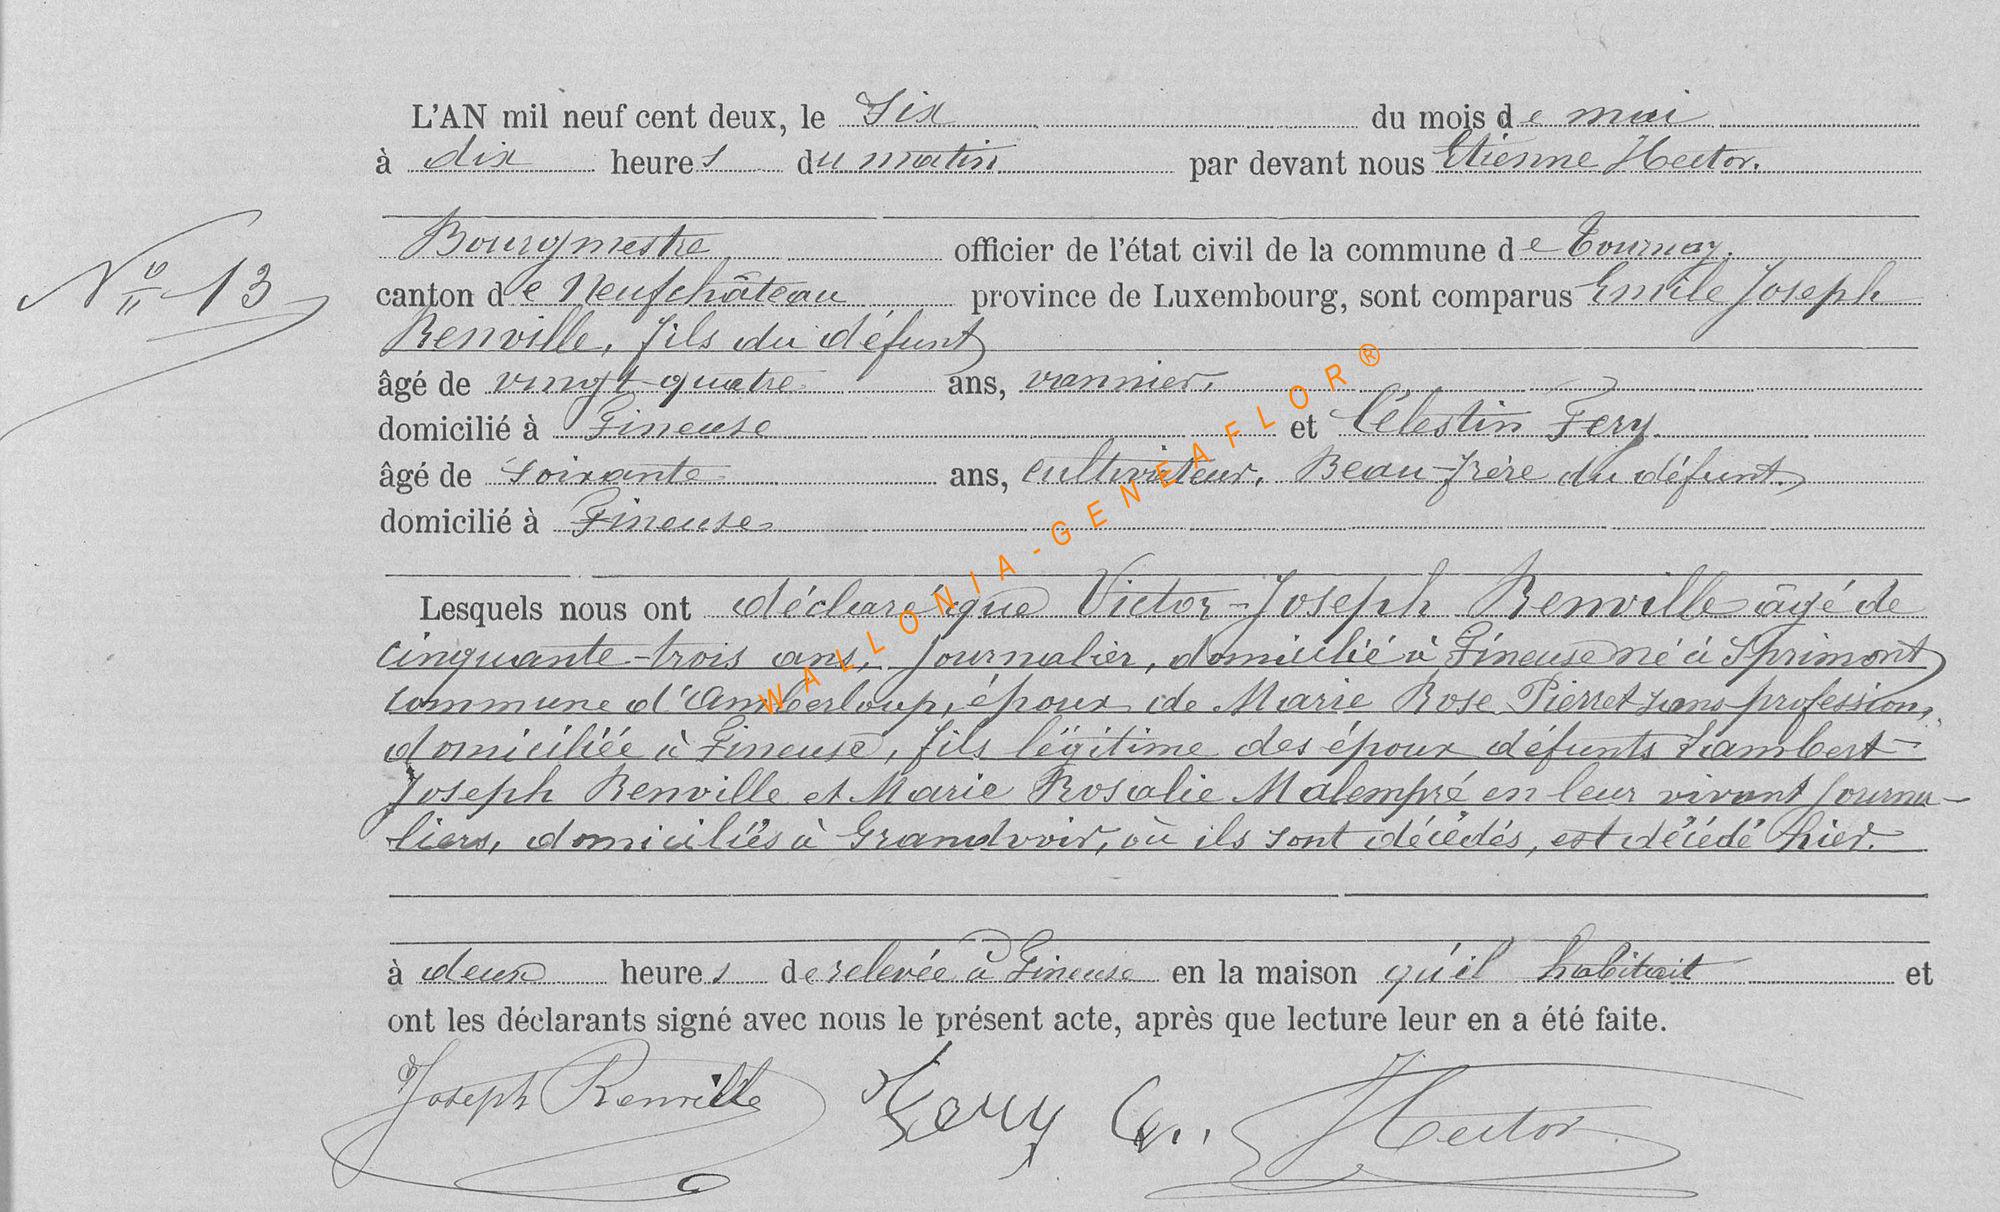 L'AN mil neuf cent deux, le six du mois de mai
à dix heures du matin par devant nous Etienne Hector.
Bourgmestre officier de l'état civil de la commune de Tournay.
N° 13
canton de Neufchâteau province de Luxembourg, sont comparus Emile Joseph
Renville, fils du défunt
âgé de vingt-quatre ans, vannier,
domicilié à Fineuse et Célestin Fery
âgé de soixante ans, cultivateur, Beau-frère du défunt,
domicilié à Fineuse
Lesquels nous ont déclaré que Victor-Joseph Renville âgé de
cinquante-trois ans, journalier, domicilié à Fineuse né à Sprimont
commune d'Amberloup, époux de Marie Rose Pierret sans profession,
domiciliée à Fineuse, fils légitime des époux défunts Lambert-
Joseph Renville et Marie Rosalie Malempré en leur vivant journa-
liers, domiciliés à Grandvoir, où ils sont décédés, est décédé hier.
à deux heures de relevée à Fineuse en la maison qu'il habitait et
ont les déclarants signé avec nous le présent acte, après que lecture leur en a été faite.
Joseph Renville Fery C. Hector
WALLONIA-GENEAFLOR®